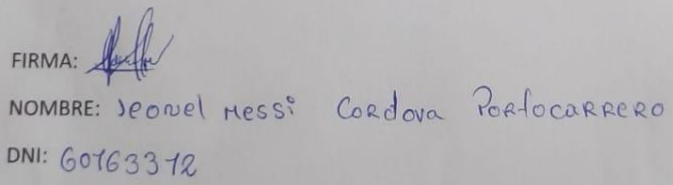 FIRMA:
NOMBRE: Jeonel Messi Cordova Portocarrero
DNI: 60763372